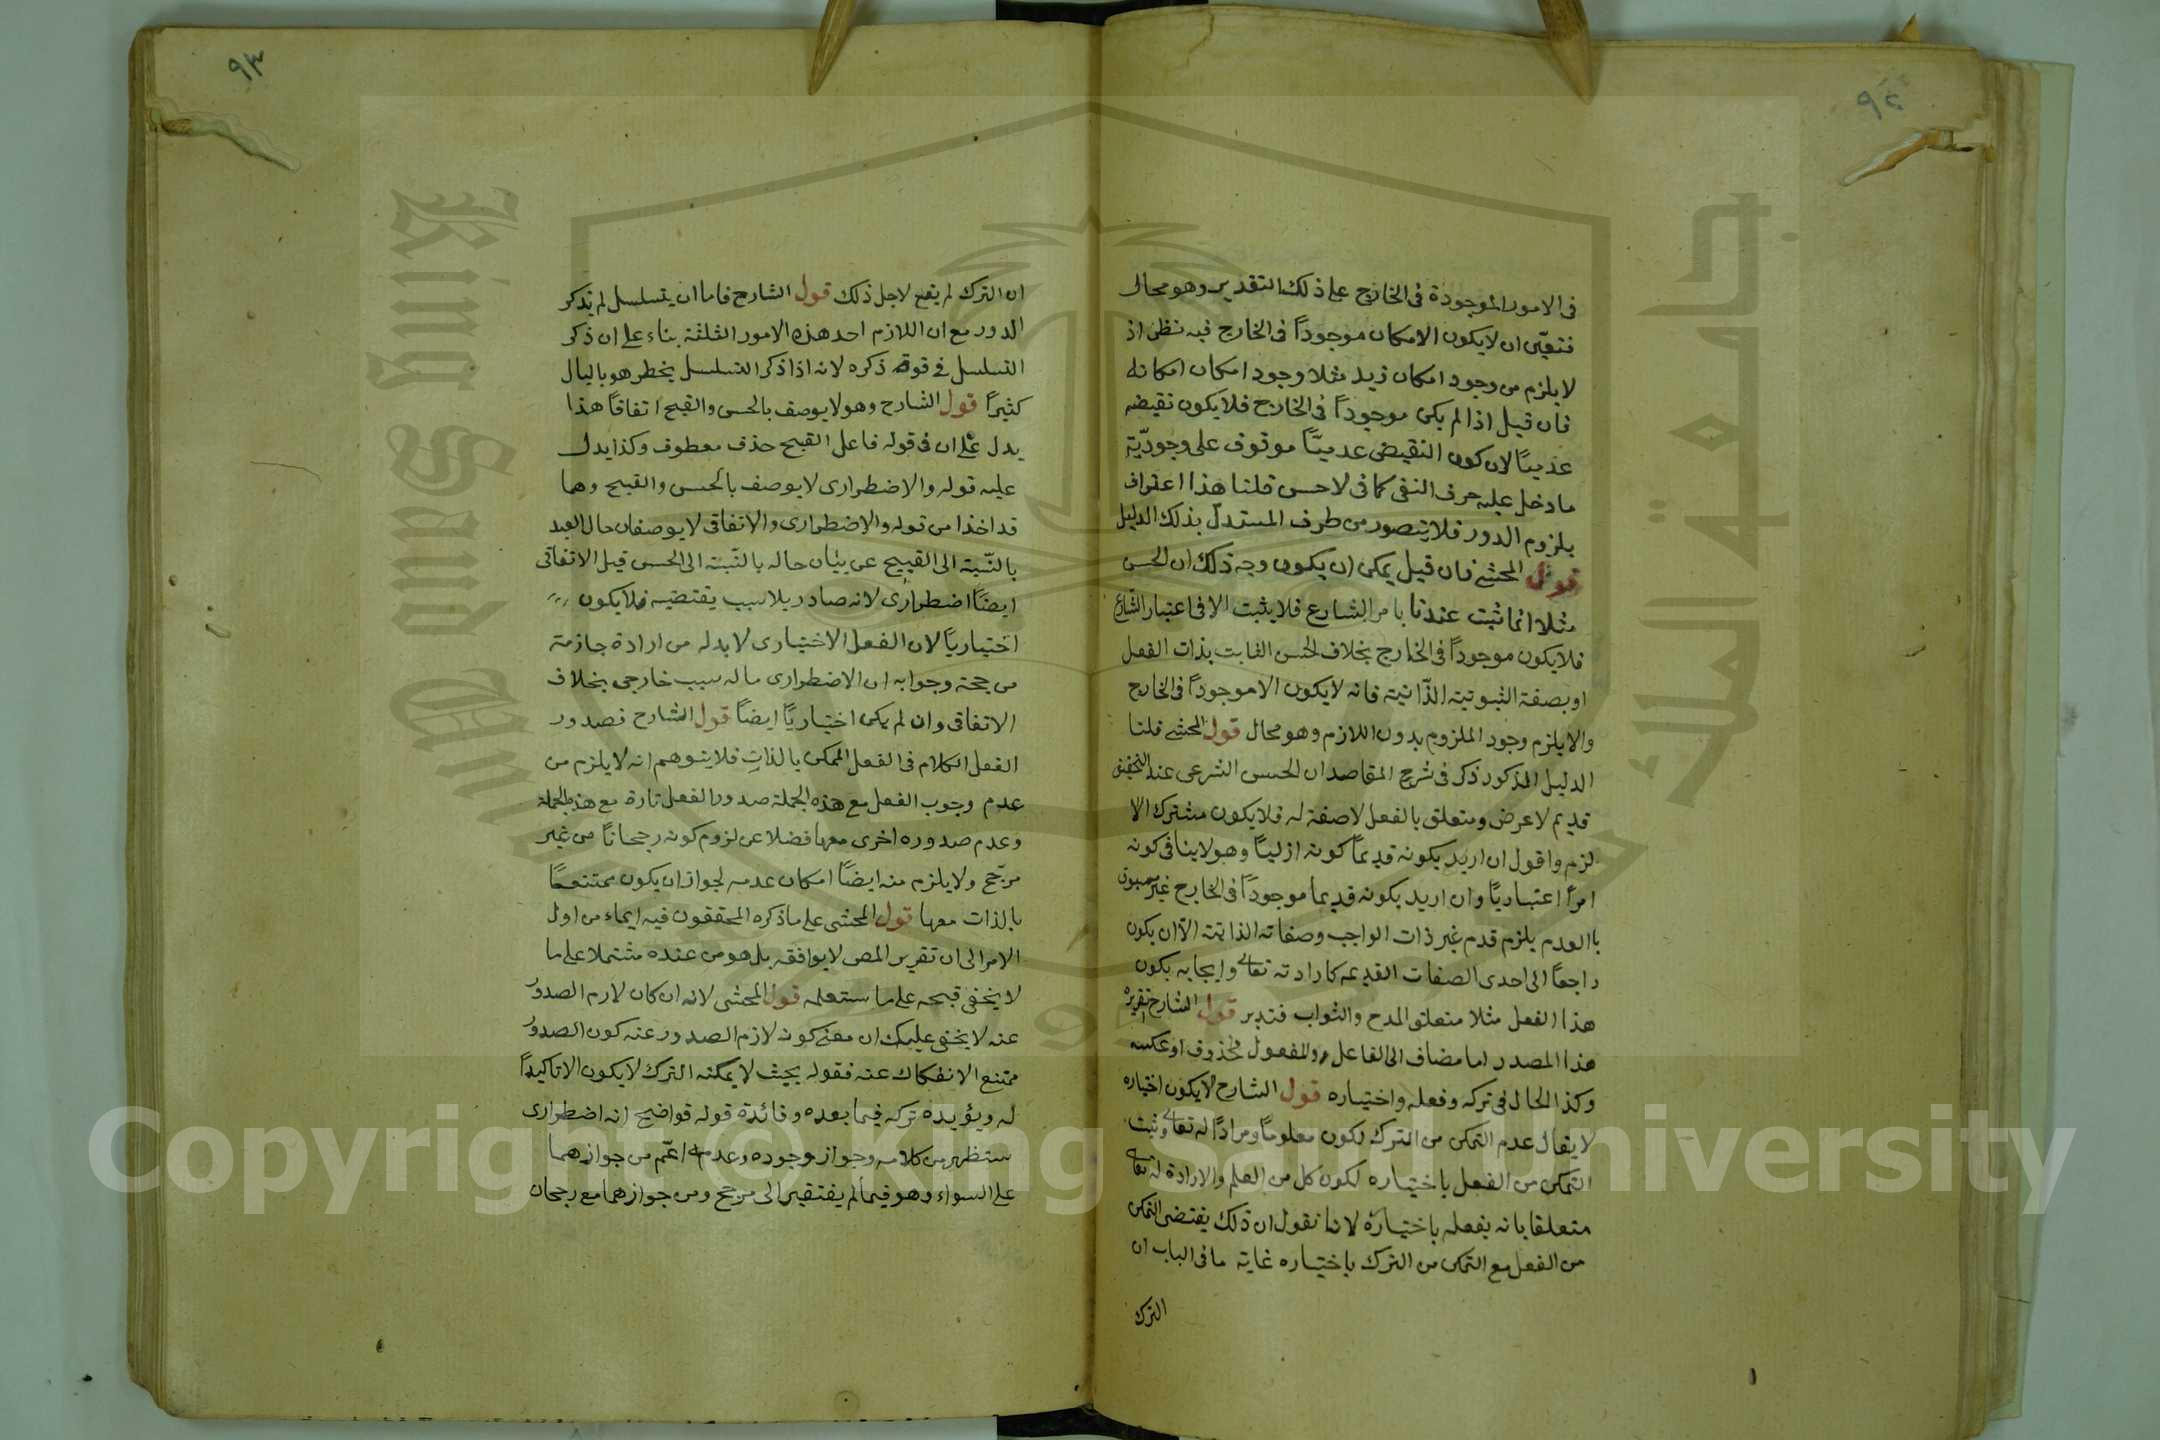 ٩٤
فى الامور الموجودة فى الخارج على ذلك التقدير وهو محال
فتعيّن ان لا يكون الامكان موجوداً فى الخارج فيه نظر اذ
لا يلزم من وجود امكان زيد مثلا وجود امكان امكانه
فان قيل اذا لم يكن موجوداً فى الخارج فلا يكون نقيضه
عدميّا لان كون النقيض عدميّاً موقوف على وجوديّة
ما دخل عليه حرف النفى كما فى لا حسن قلنا هذا اعتراف
بلزوم الدور فلا يتصور من طرف المستدلّ بذلك الدليل
قول المحشى فان قيل يمكن ان يكون وجه ذلك ان الحسن
مثلا انما ثبت عندنا بامر الشارع فلا يثبت الا فى اعتبار الشارع
فلا يكون موجوداً فى الخارج بخلاف الحسن الثابت بذات الفعل
او بصفة الثبوتية الذّاتية فانه لا يكون الا موجوداً فى الخارج
والا يلزم وجود الملزوم بدون اللازم وهو محال قول المحشى قلنا
الدليل المذكور ذكر فى شرح المقاصد ان الحسن الشرعى عند التحقيق
قديم لا عرض ومتعلق بالفعل لا صفة له فلا يكون مشترك الا
لزم واقول ان اريد بكونه قديماً كونه ازليّاً وهو لا ينافى كونه
امراً اعتباريّاً وان اريد بكونه قديما موجوداً فى الخارج غير مسبوق
بالعدم يلزم قدم غير ذات الواجب وصفاته الذاتية الّا ان يكون
راجعاً الى احدى الصفات القديمه كارادته تعالى وايجابه بكون
هذا الفعل مثلا متعلق المدح والثواب فتدبر قول الشارح تقريره
هذا المصدر اما مضاف الى الفاعل والمفعول محذوف او عكسه
وكذا الحال فى تركه وفعله واختياره قول الشارح لا يكون اختياره
لا يقال عدم التمكن من الترك لكون معلوماً ومراداً له تعالى وثبت
التمكن من الفعل باختياره لكون كل من العلم والارادة له تعالى
متعلقا بانه يفعله باختياره لانا نقول ان ذلك يقتضى التمكن
من الفعل مع التمكن من الترك باختياره غاية ما فى الباب ان
الترك
٩٣
ان الترك لم يقع لاجل ذلك قول الشارح فاما ان يتسلسل لم يذكر
الدور مع ان اللازم احد هذه الامور الثلثة بناء على ان ذكر
التسلسل فى قوة ذكره لانه اذا ذكر التسلسل يخطر هو بالبال
كثيراً قول الشارح وهو لا يوصف بالحسن والقبح اتفاقاً هذا
يدل على ان فى قوله فاعل القبيح حذف معطوف وكذا يدل
عليه قوله والاضطرارى لا يوصف بالحسن والقبيح وهما
قد اخذا من قوله والاضطرارى والاتفاقى لا يوصفان حال العبد
بالنّسبة الى القبيح عن بيان حاله بالنّسبة الى الحسن قيل الاتفاقى
ايضاً اضطرارى لانه صادر بلا سبب يقتضيه فلا يكون
اختياريّا لان الفعل الاختيارى لا بد له من ارادة جازمة
مرجحة وجوابه ان الاضطرارى ما له سبب خارجى بخلاف
الاتفاقى وان لم يكن اختياريّاً ايضاً قول الشارح فصدور
الفعل الكلام فى الفعل الممكن بالذات فلا يتوهم انه لا يلزم من
عدم وجوب الفعل مع هذه الجملة صدور الفعل تارة مع هذه الجملة
وعدم صدوره اخرى معها فضلا عن لزوم كونه رجحاناً من غير
مرجّح ولا يلزم منه ايضاً امكان عدمه لجواز ان يكون ممتنعاً
بالذات معها قول المحشى على ما ذكره المحققون فيه ايماء من اول
الامر الى ان تقرير المص لا يوافقه بل هو من عنده مشتملا على ما
لا يخفى قبحه على ما ستعلمه قول المحشى لانه ان كان لازم الصدور
عنه لا يخفى عليك ان معنى كونه لازم الصدور عنه كون الصدور
ممتنع الانفكاك عنه فقوله بحيث لا يمكنه الترك لا يكون الا تاكيداً
له ويؤيده تركه فيما بعده وفائدة قوله فواضح انه اضطرارى
ستظهر من كلامه وجواز وجوده وعدمه اعمّ من جوازهما
على السواء وهو فيما لم يفتقر الى مرجح ومن جوازهما مع رجحان
جامعة الملك سعود
King Saud University
Copyright © King Saud University